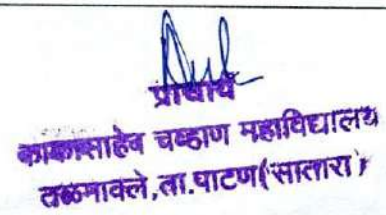 प्राचार्य
काकासाहेब चव्हाण महाविद्यालय
तळमावले,ता.पाटण(सातारा)